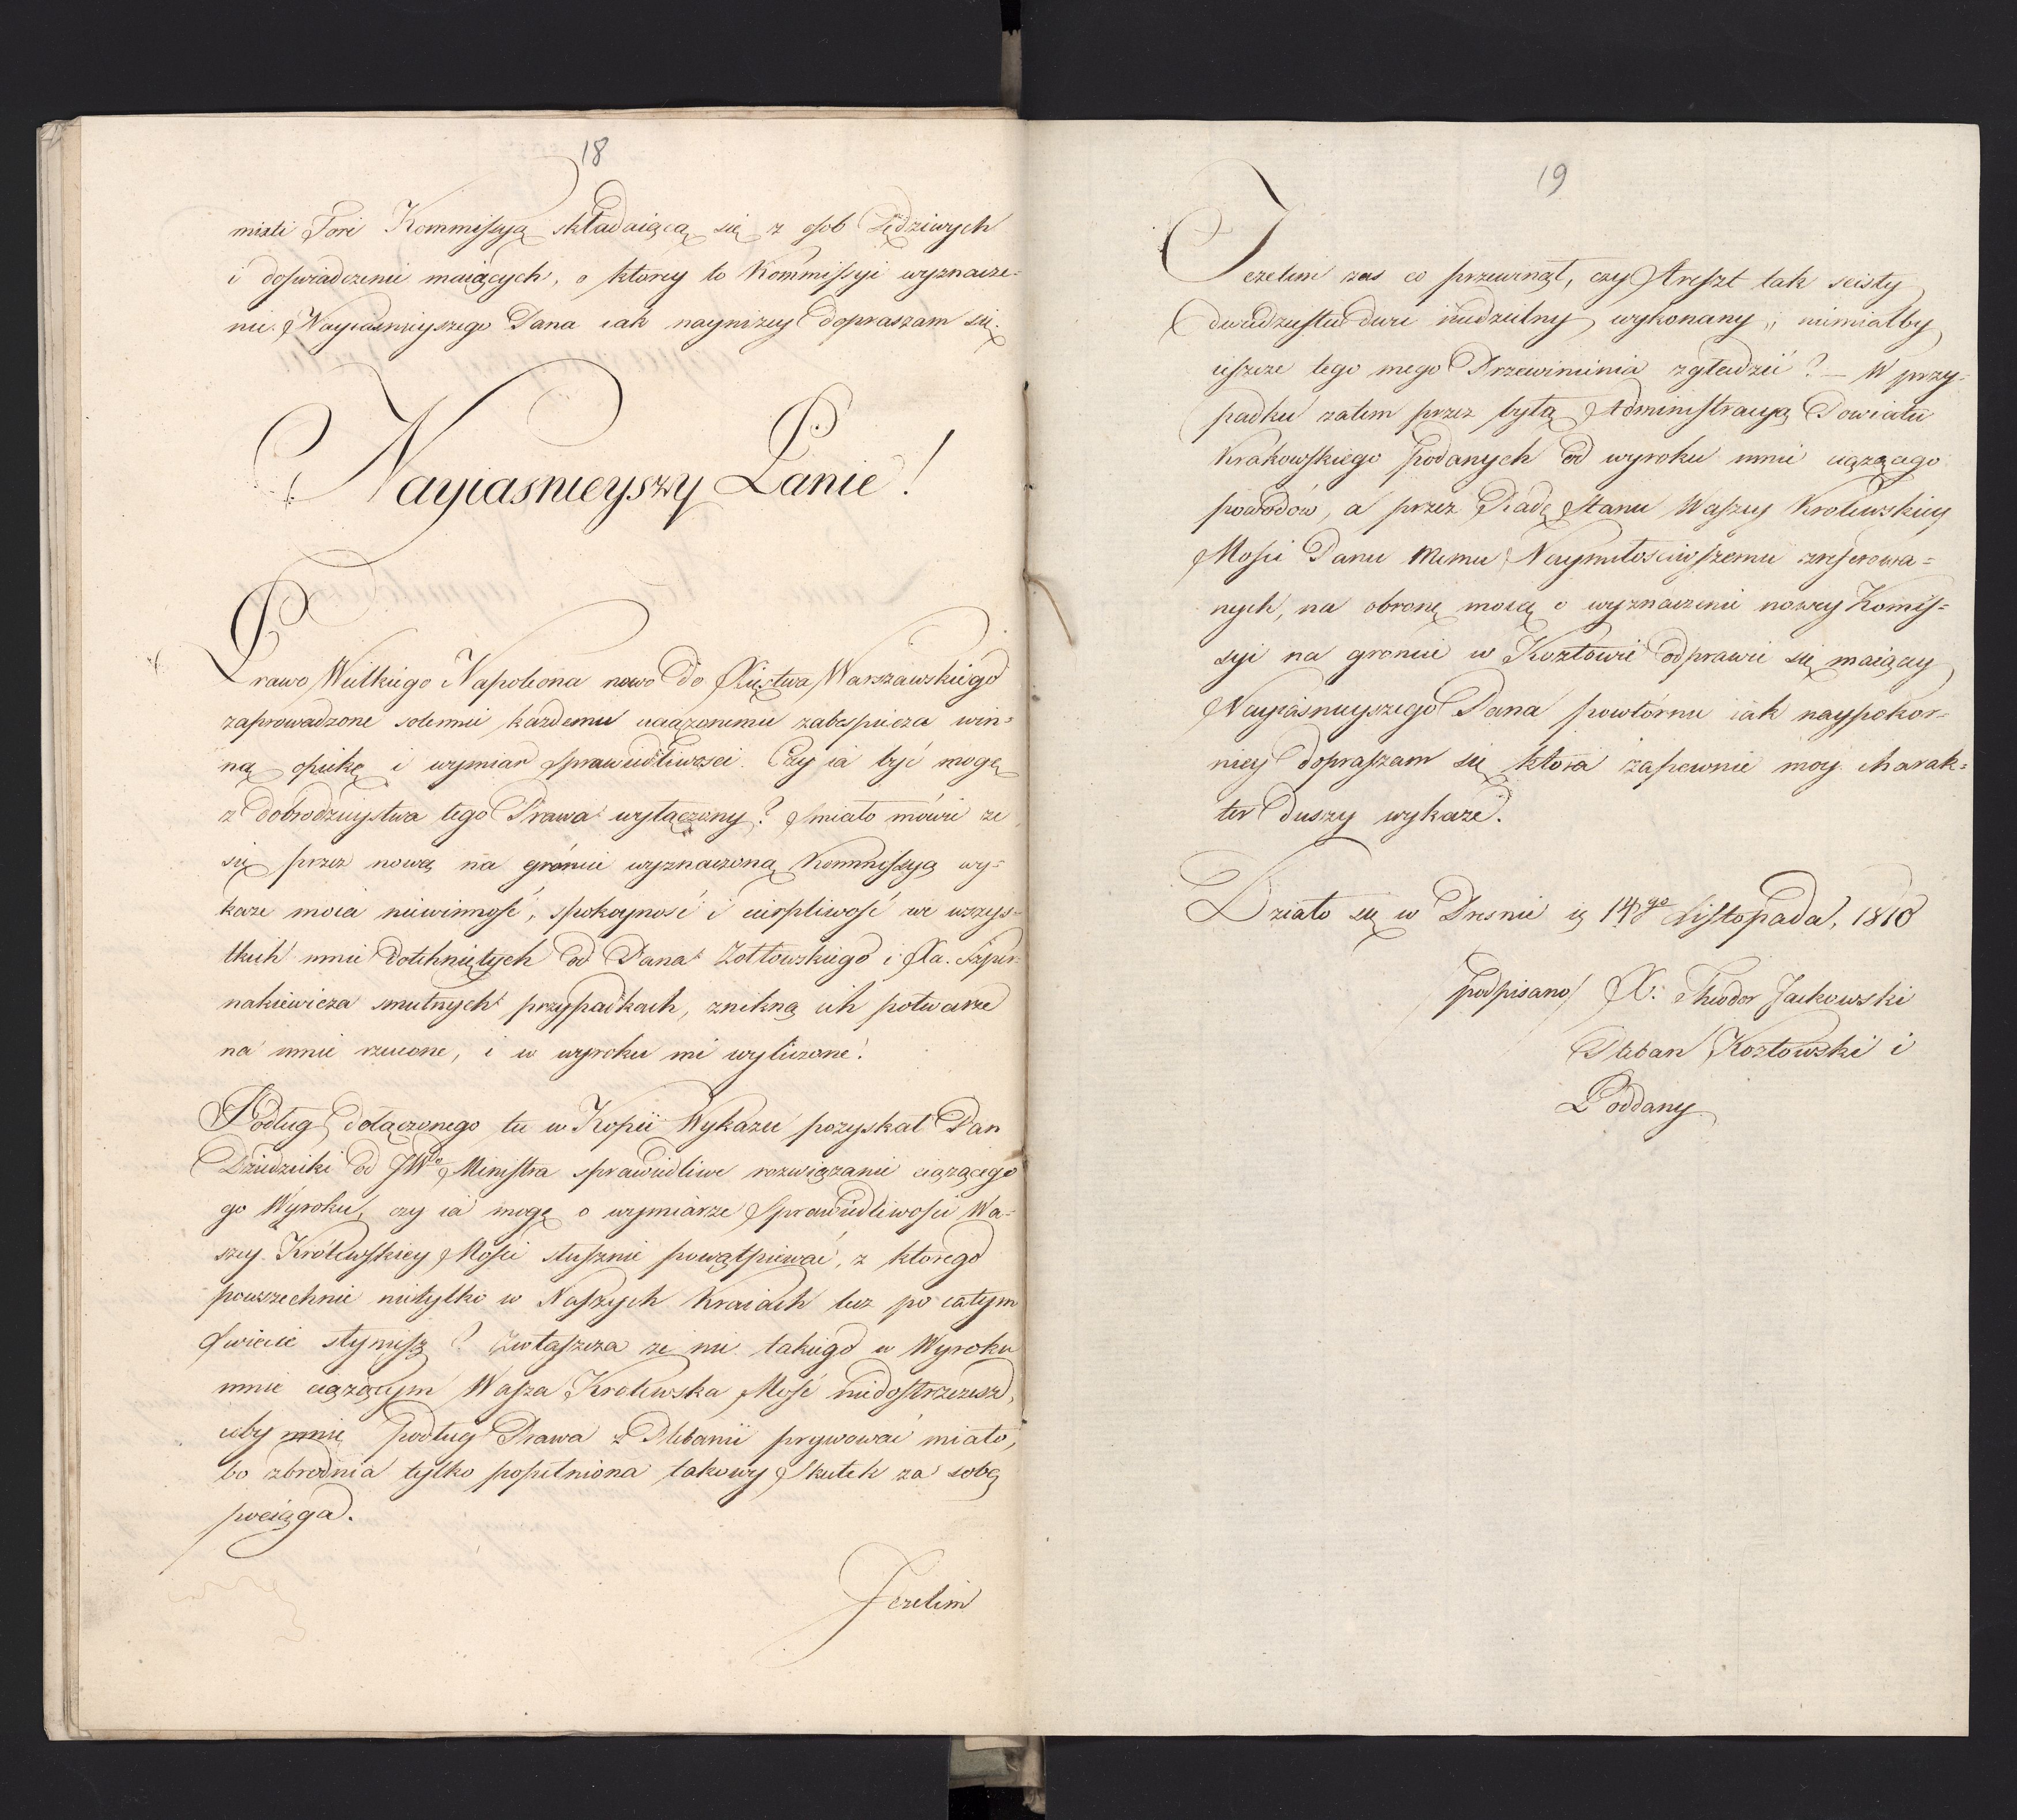 18
misti Fori Kommissyą składaiącą się z osob Sędziwych
i doswiadczenie maiących, o ktorey to Kommissyi wyznacze=
nie Nayiasnieyszego Pana iak nayniżey dopraszam się.
Nayiasnieyszy Panie!
Prawo Wielkiego Napoleona nowo do Xięstwa Warszawskiego
zaprowadzone solennie każdemu uciążonemu zabespiecza win=
ną opiekę i wymiar sprawiedliwosci. Czy ia być mogę
z dobrodzieystwa tego Prawa wyłączony? Smiało mówię ze
się przez nową na gróncie wyznaczoną Kommissyą wy=
każe moia niewinność, spokoyność i cierpliwość we wszys=
tkich mnie dotchniętych od Pana Zołtowskiego i Xa. Szper=
nakiewicza smutnych przypadkach, znikną ich potwarze
na mnie rzucone, i w wyroku mi wyliczone!
Podług dołączonego tu w Kopii Wykazu pozyskał Pan
Dziedzicki od JWgo Ministra sprawiedliwe rozwiązanie ciążącego
go Wyroku, czy ia mogę o wymiarze Sprawiedliwości Wa=
szey Królewskiey Mości słusznie powątpiewać, z ktorego
powszechnie nietylko w Naszych Kraiach lecz po całym
Swiecie słyniesz? zwłaszcza ze nic takiego w Wyroku
mnie ciążącym Wasza Krolewska Mość niedostrzeżesz,
coby mnie podług Prawa z Plebanii prywować miało,
bo zbrodnia tylko popełniona takowy Skutek za sobą
pociąga.
Jezelim
19
Jezelim zas co przewinął, czy Areszt tak scisty
dwudziestu dwu niedzielny wykonany, niemiałby
ieszcze tego mego Przewinienia zgładzić? – W przy=
padku zatem przez byłą Administracyą Powiatu
Krakowskiego podanych od wyroku mnie ciążącego
powodów, a przez Radę Stanu Waszey Krolewskiey
Mości Panu memu Naymiłosciwszemu zreferowa=
nych, na obronę moią o wyznaczenie nowey Komis=
syi na gróncie w Kozłowie odprawić się maiącey
Nayiasnieyszego Pana powtórnie iak naypokor=
niey dopraszam się ktora zapewnie moy charak=
ter duszy wykaże.
Działo się w Dreznie ią 14go Listopada, 1810
podpisano/ X. Theodor Jackowski
Pleban Kozłowski i
Poddany